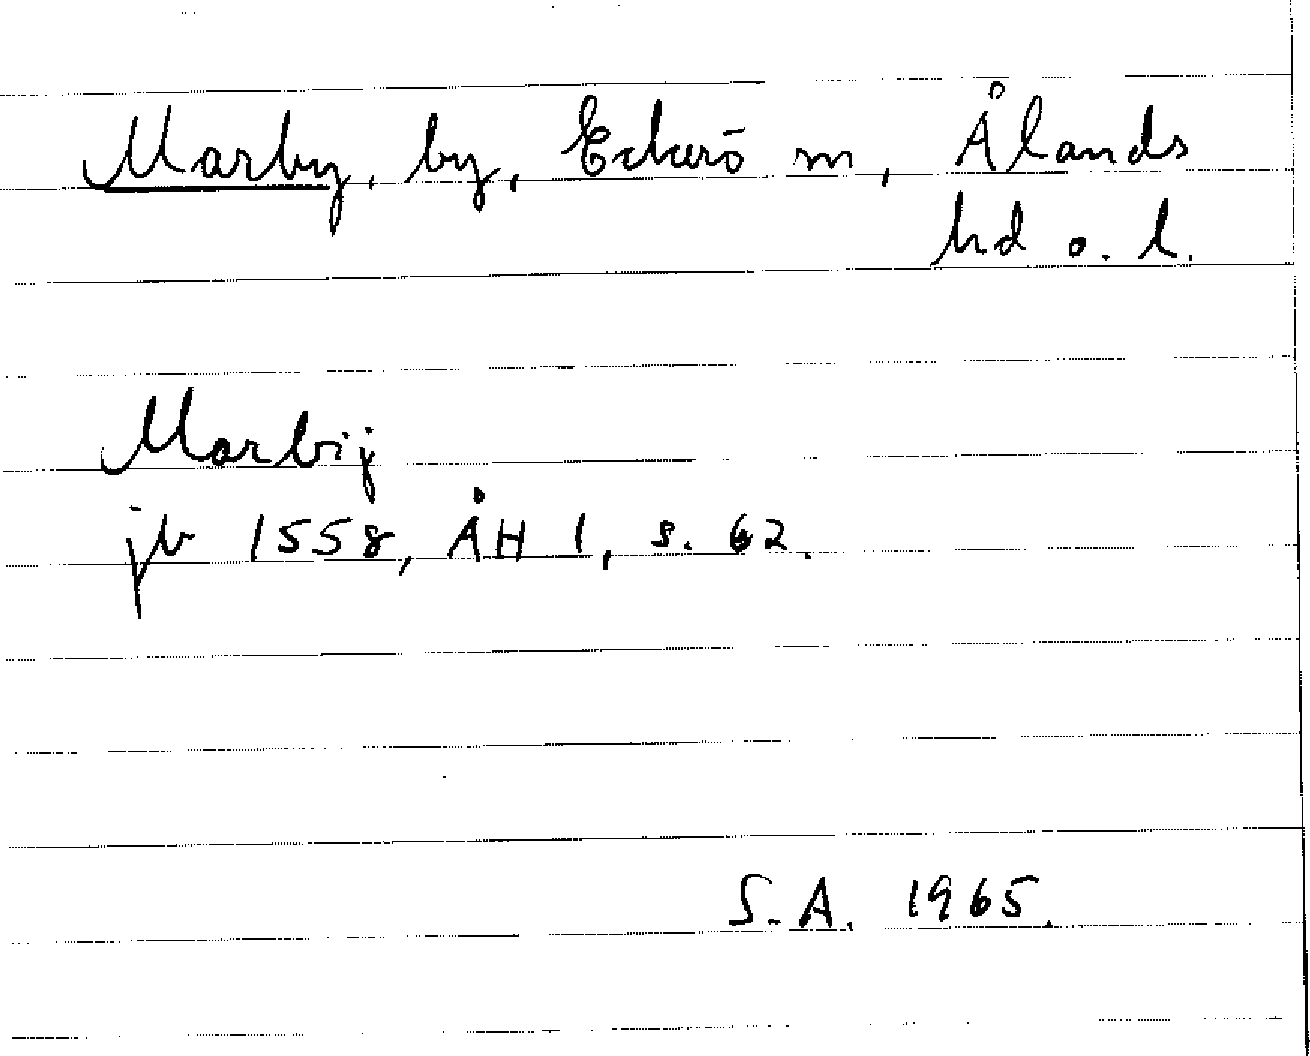 Marby, by, Eckerö m, Ålands
hd o. l.
Marbij
jb 1558, ÅH 1, s. 62.
S.A. 1965.